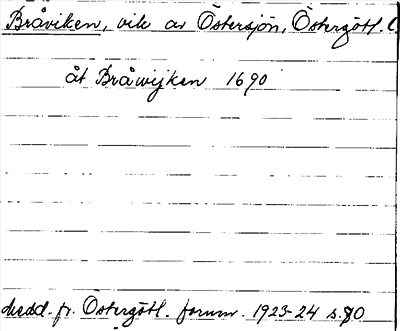 Bråviken, vik av Östersjön, Östergötl. l
åt Bråwijken 1690
Medd. fr. Östergötl. fornm. 1923-24 s. 80